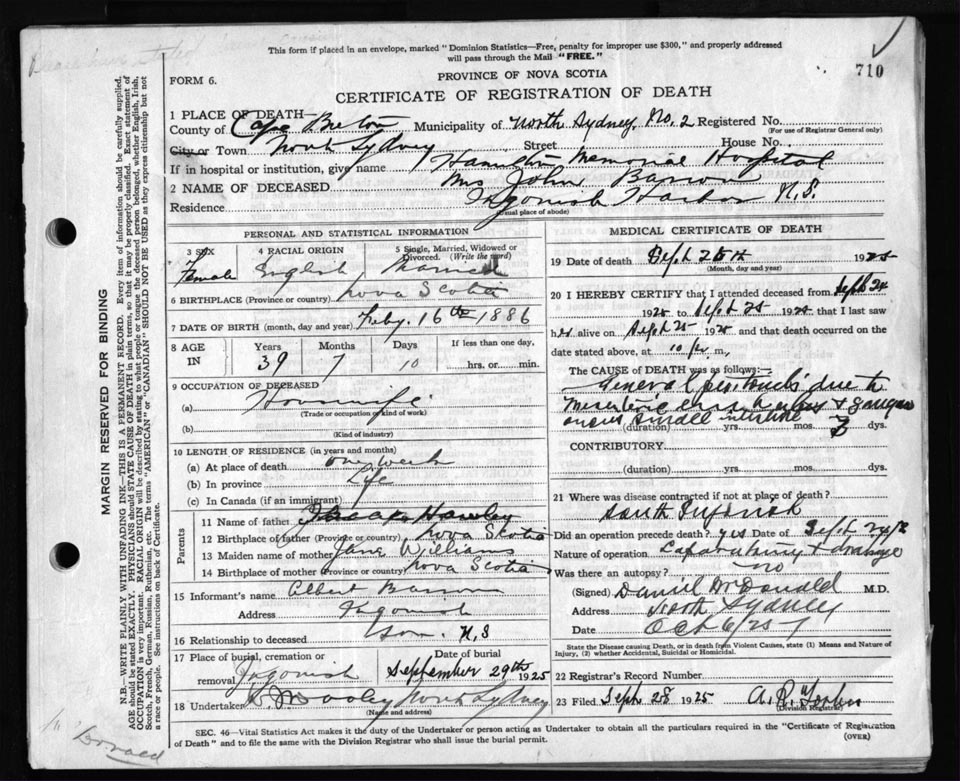 This form if placed in an envelope, marked "Dominion Statistics—Free, penalty for improper use $300," and properly addressed
will pass through the Mail "FREE."
710
PROVINCE OF NOVA SCOTIA
FORM 6.
CERTIFICATE OF REGISTRATION OF DEATH
1 PLACE OF DEATH—
County of Cape Breton Municipality of North Sydney, No. 2 Registered No.
(For use of Registrar General only)
City or Town North Sydney Street House No.
If in hospital or institution, give name Hamilton Memorial Hospital
2 NAME OF DECEASED Mrs John Barron
Residence Ingonish Harbor N.S.
(Usual place of abode)
PERSONAL AND STATISTICAL INFORMATION
3 SEX 4 RACIAL ORIGIN 5 Single, Married, Widowed or Divorced. (Write the word)
Female English Married
6 BIRTHPLACE (Province or country) Nova Scotia
7 DATE OF BIRTH (month, day and year) Feby. 16th 1886
8 AGE IN Years Months Days If less than one day,
39 7 10 hrs. or min.
9 OCCUPATION OF DECEASED
(a) Housewife
(Trade or occupation or kind of work)
(b)
(Kind of industry)
10 LENGTH OF RESIDENCE (in years and months)
(a) At place of death one week
(b) In province Life
(c) In Canada (if an immigrant)
Parents
11 Name of father Hawley
12 Birthplace of father (Province or country) Nova Scotia
13 Maiden name of mother Jane Williams
14 Birthplace of mother (Province or country) Nova Scotia
15 Informant's name Albert Barron
Address Ingonish
16 Relationship to deceased Son. N.S
17 Place of burial, cremation or removal Ingonish Date of burial September 29th 1925
18 Undertaker North Sydney
(Name and address)
MEDICAL CERTIFICATE OF DEATH
19 Date of death Sept 25th 1925
(Month, day and year)
20 I HEREBY CERTIFY that I attended deceased from Sept 24
1925 to Sept 25 1925 that I last saw
her alive on Sept 25 1925 and that death occurred on
date stated above, at 10 m.,
The CAUSE of DEATH was as follows:—
General peritonitis due to
small intestine
(duration) yrs. mos. dys.
CONTRIBUTORY
(duration) yrs. mos. dys.
21 Where was disease contracted if not at place of death?
South Ingonish
Did an operation precede death? yes Date of Sept
Nature of operation drainage
Was there an autopsy? no
(Signed) Daniel McDonald M.D.
Address North Sydney
Date Oct 6/25
State the Disease causing Death, or in death from Violent Causes, state (1) Means and Nature of Injury, (2) whether Accidental, Suicidal or Homicidal.
22 Registrar's Record Number
23 Filed Sept 28 1925 A. R. Forbes
(Division Registrar)
SEC. 46—Vital Statistics Act makes it the duty of the Undertaker or person acting as Undertaker to obtain all the particulars required in the "Certificate of Registration
of Death" and to file the same with the Division Registrar who shall issue the burial permit.
(OVER)
MARGIN RESERVED FOR BINDING
N.B.—WRITE PLAINLY WITH UNFADING INK—THIS IS A PERMANENT RECORD. Every item of information should be carefully supplied.
AGE should be stated EXACTLY. PHYSICIANS should STATE CAUSE OF DEATH in plain terms, so that it may be properly classified. Exact statement of
OCCUPATION is very important. RACIAL ORIGIN will be described by stating to what people or tongue the deceased person belonged, whether English, Irish,
Scotch, French, German, Russian, Ruthenian, etc. The terms "AMERICAN" or "CANADIAN" SHOULD NOT BE USED as they express citizenship but not
a race or people. See instructions on back of Certificate.